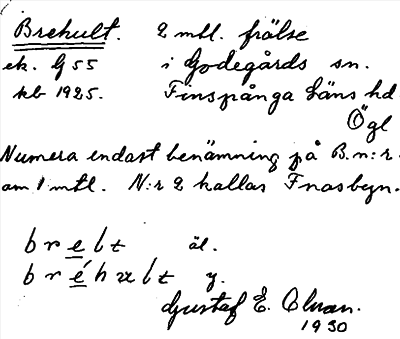 Brehult. 2 mtl. frälse
ek. G 55 i Godegårds sn.
kb 1925. Finspånga Läns hd.
Ögl
Numera endast benämning på B. n:r.
am 1 mtl. N:r 2 kallas Fnasbyn.
brelt äl.
bréhult y.
Gustaf E.
1930